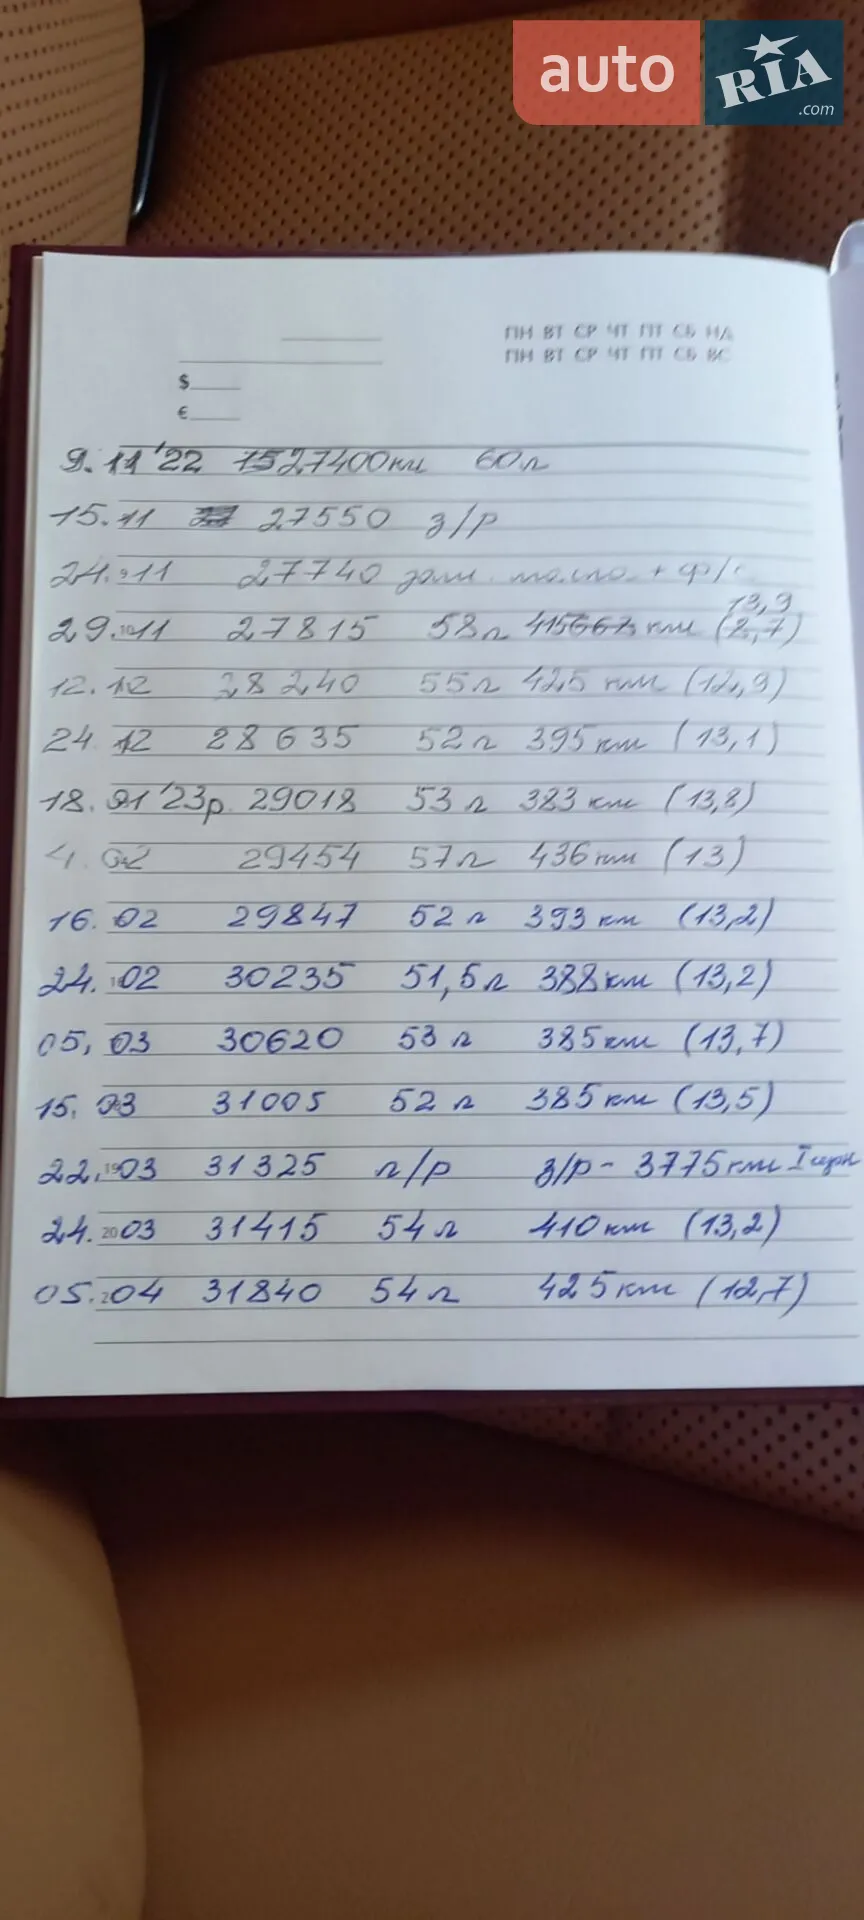 auto RIA .com
ПН ВТ СР ЧТ ПТ СБ НД
ПН ВТ СР ЧТ ПТ СБ ВС
$
€
9.11'22 27400км 60л
15.11 27550 з/р
24.11 27740 + ф/
29.11 27815 58л 415 км 13,9
12.12 28240 55л 425 км (12,9)
24 12 28635 52л 395км (13,1)
18.01'23р. 29018 53л 383 км (13,8)
4.02 29454 57л 436км (13)
16.02 29847 52л 393 км (13,2)
24.02 30235 51,5л 388км (13,2)
05,03 30620 53л 385км (13,7)
15.03 31005 52л 385км (13,5)
22.03 31325 л/р з/р - 3775км I
24.03 31415 54л 410км (13,2)
05.04 31840 54л 425км (12,7)